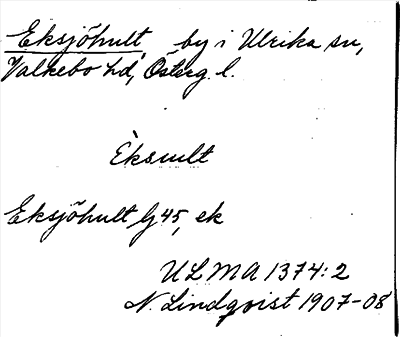 Eksjöhult, by i Ulrika sn,
Valkebo hd, Österg. l.
Èksult
Eksjöhult G 45, ek
ULMA 1374:2
N. Lindqvist 1907-08